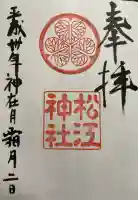 奉拝
松江神社
平成卅年神在月霜月二日